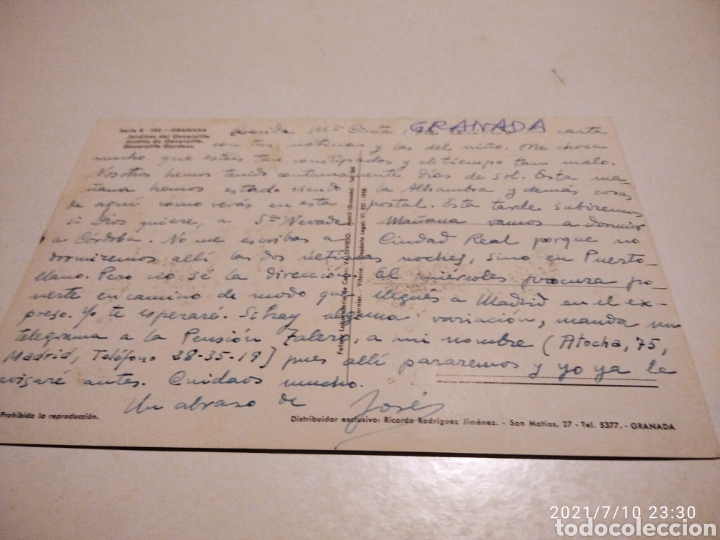 Serie B - 133 - GRANADA
Jardines del Generalife.
Jardins du Generalife.
Generalife Gardens.
GRANADA
Querida Mª carta
con tus noticias y las del niño. Me choca
mucho que esteis tan constipados y el tiempo tan malo.
Nosotros hemos tenido continuamente días de sol. Esta ma-
ñana hemos estado viendo la Alhambra y demás cosas
de aquí como verás en esta postal. Esta tarde subiremos
si Dios quiere, a Sª Nevada Mañana vamos a dormir
a Córdoba. No me escribas a Ciudad Real porque no
dormiremos allí las dos últimas noches, sino en Puerto-
llano. Pero no sé la dirección. El miércoles procura po-
nerte en camino de modo que llegues a Madrid en el ex-
preso. Yo te esperaré. Si hay alguna variación, manda un
telegrama a la Pensión a mi nombre (Atocha, 75,
Madrid, Teléfono 28-35-19) pues allí pararemos y yo ya le
avisaré antes. Cuidaos mucho.
Un abrazo de José
Prohibida la reproducción.
Distribuidor exclusivo: Ricardo Rodríguez Jiménez. - San Matías, 27 - Tel. 5377. - GRANADA
2021/7/10 23:30
todocoleccion